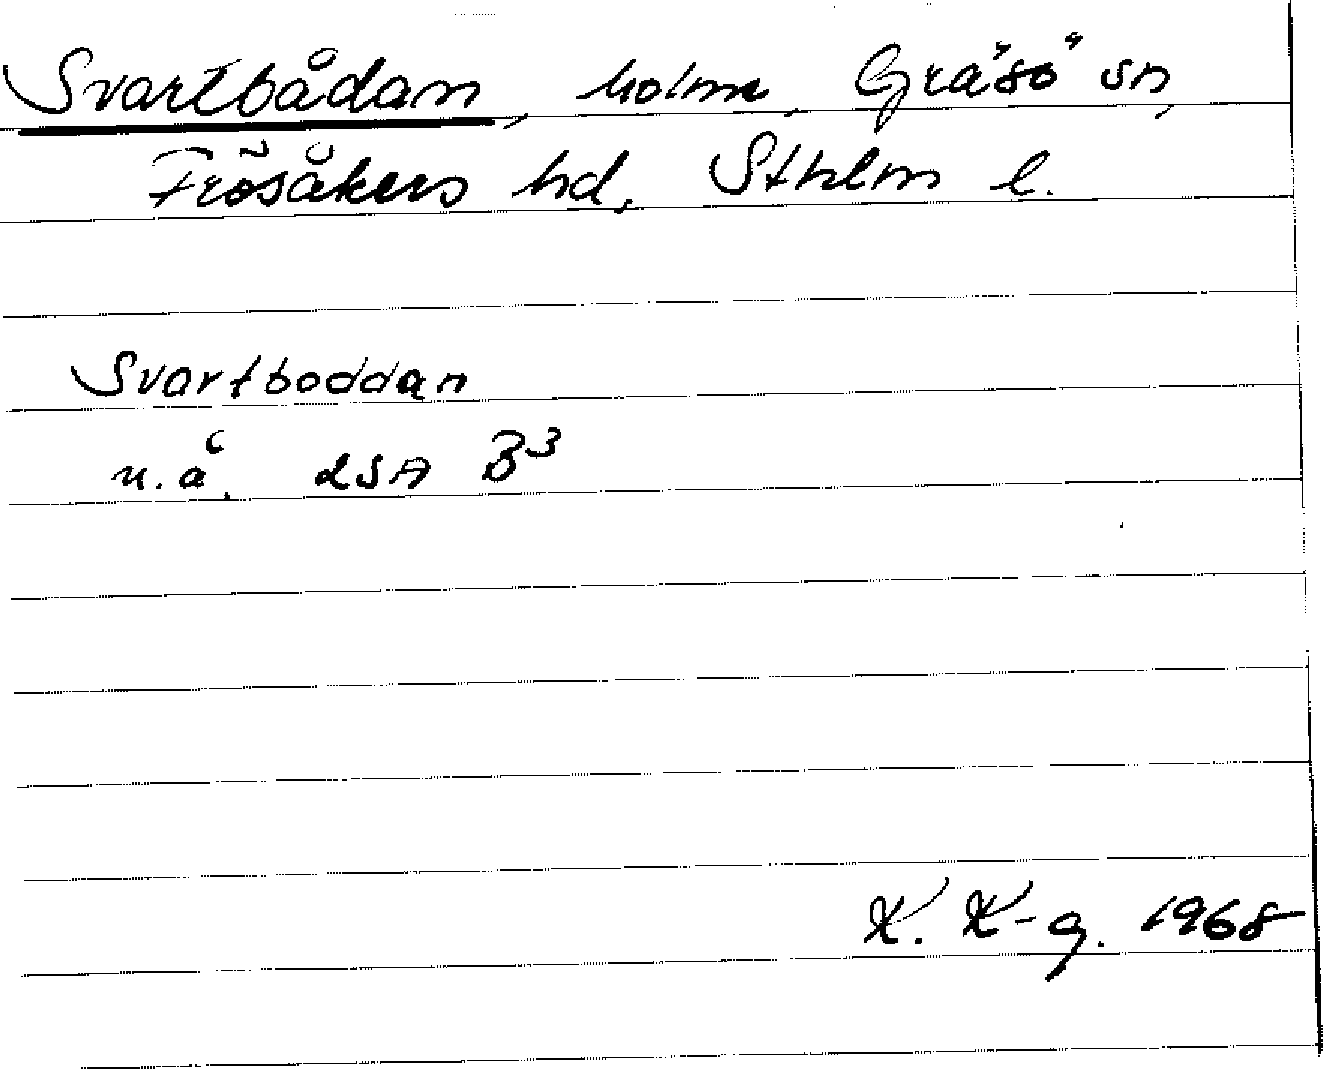 Svartbådan, holme, Gräsö sn,
Frösåkers hd, Sthlm l.
Svartboddan
u.å. LSA B3
K. K-g. 1968